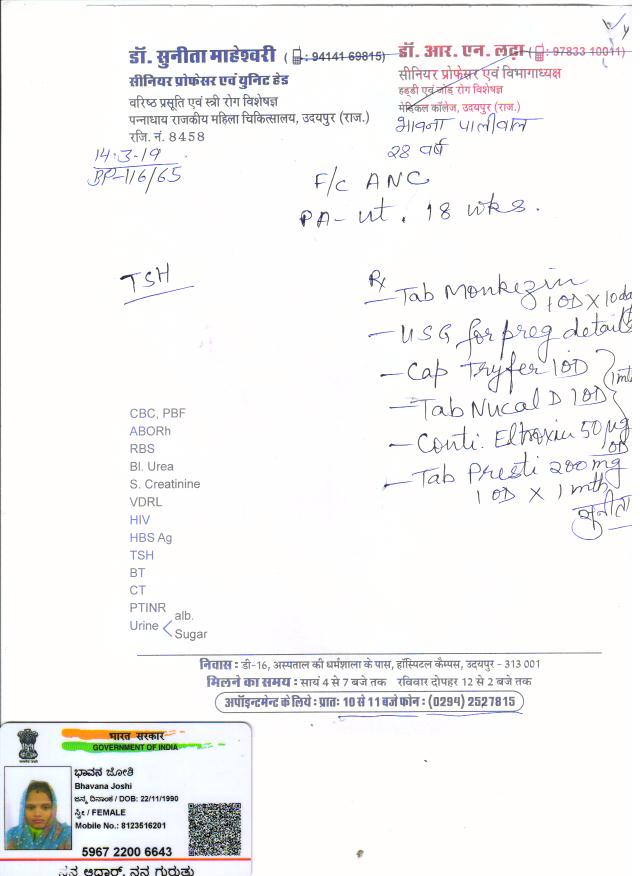 डॉ. सुनीता माहेश्वरी ( : 94141 69815)
सीनियर प्रोफेसर एवं युनिट हेड
वरिष्ठ प्रसूति एवं स्त्री रोग विशेषज्ञ
पन्नाधाय राजकीय महिला चिकित्सालय, उदयपुर (राज.)
रजि. नं. 8458
डॉ. आर. एन. लढ़ा ( : 97833 10011)
सीनियर प्रोफेसर एवं विभागाध्यक्ष
हड्डी एवं जोड़ रोग विशेषज्ञ
मेडिकल कॉलेज, उदयपुर (राज.)
भावना पालीवाल
28 वर्ष
14-3-19
BP-116/65
F/c ANC
PA- ut. 18 wks.
TSH
Rx
- Tab Monkezin
1 OD X 10 da
- USG for preg details
- Cap Tryfer 1 OD
- Tab Nucal D 1 OD
1 mth
- Conti. Eltroxin 50 µg
OD
- Tab Presti 200 mg
1 OD X 1 mth
सुनीता
CBC, PBF
ABORh
RBS
Bl. Urea
S. Creatinine
VDRL
HIV
HBS Ag
TSH
BT
CT
PTINR
Urine alb.
Sugar
निवास : डी-16, अस्पताल की धर्मशाला के पास, हॉस्पिटल कैम्पस, उदयपुर - 313 001
मिलने का समय : सायं 4 से 7 बजे तक रविवार दोपहर 12 से 2 बजे तक
अपॉइन्टमेन्ट के लिये : प्रातः 10 से 11 बजे फोन : (0294) 2527815
भारत सरकार
GOVERNMENT OF INDIA
ಭಾವನ ಜೋಶಿ
Bhavana Joshi
ಜನ್ಮ ದಿನಾಂಕ / DOB: 22/11/1990
ಸ್ತ್ರೀ / FEMALE
Mobile No.: 8123516201
5967 2200 6643
ನನ್ನ ಆಧಾರ್, ನನ್ನ ಗುರುತು